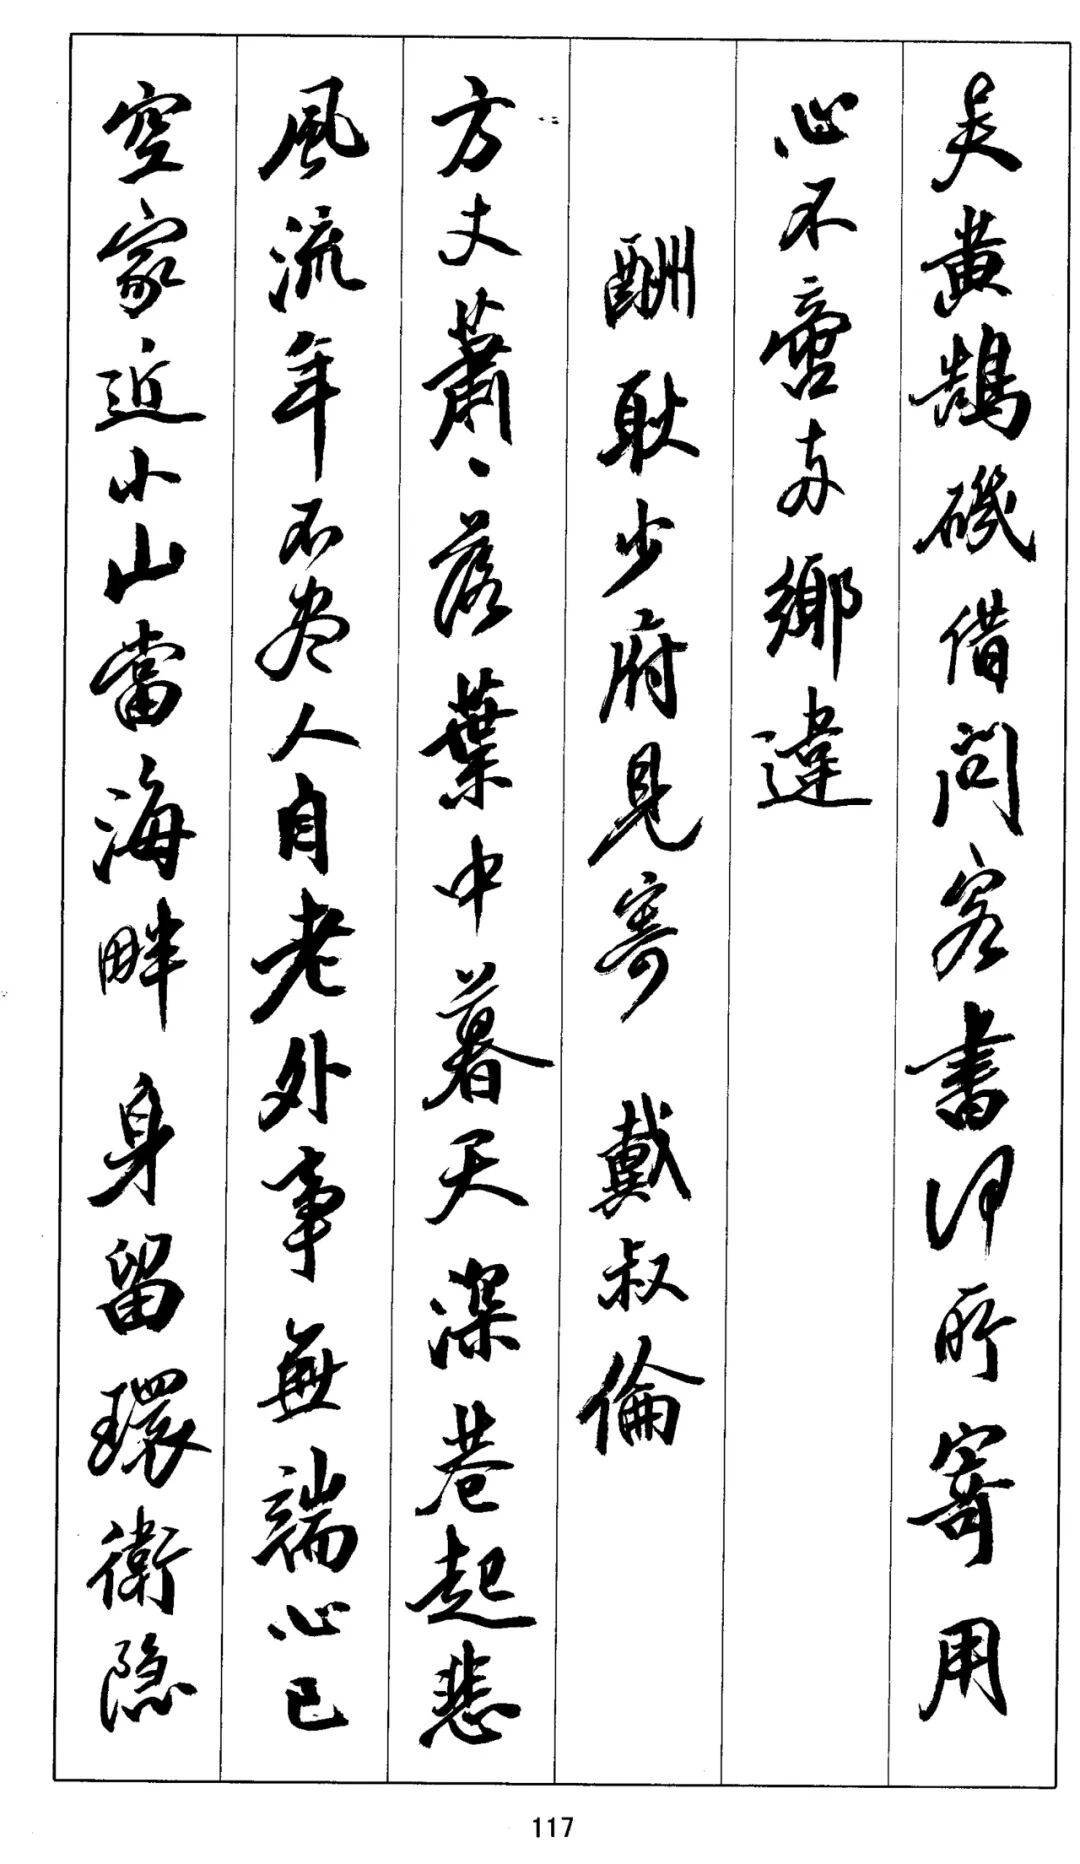 吴黄鹄磯借問客書何所寄用
心不啻两鄉違
酬耿少府見寄 戴叔倫
方丈蕭〻落葉中暮天深巷起悲
風流年不尽人自老外事無端心已
空家近小山當海畔身留環衛隐
117